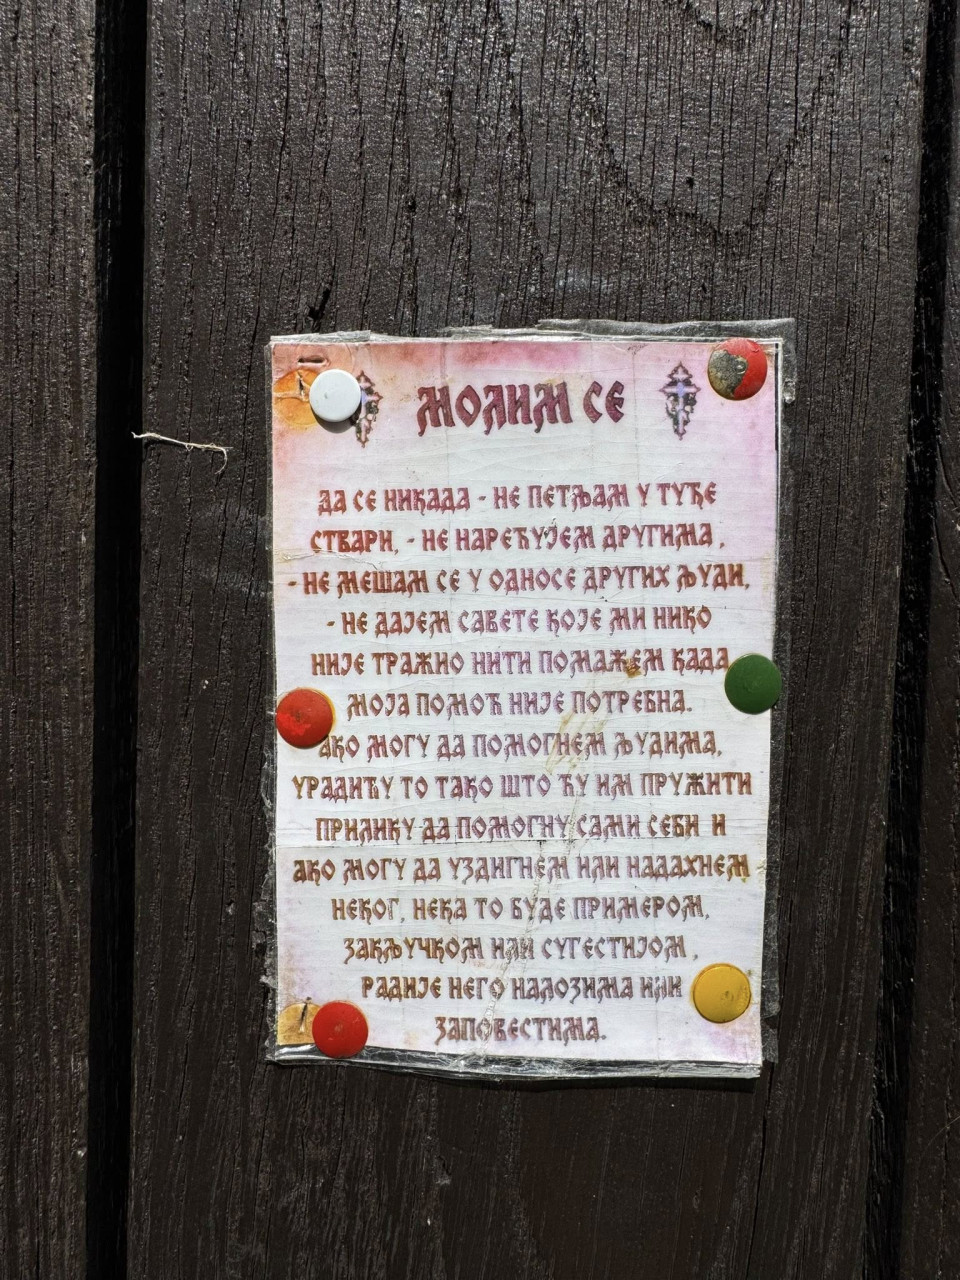 МОЛИМ СЕ
ДА СЕ НИКАДА - НЕ ПЕТЉАМ У ТУЂЕ
СТВАРИ, - НЕ НАРЕЂУЈЕМ ДРУГИМА ,
- НЕ МЕШАМ СЕ У ОДНОСЕ ДРУГИХ ЉУДИ,
- НЕ ДАЈЕМ САВЕТЕ КОЈЕ МИ НИКО
НИЈЕ ТРАЖИО НИТИ ПОМАЖЕМ КАДА
МОЈА ПОМОЋ НИЈЕ ПОТРЕБНА.
АКО МОГУ ДА ПОМОГНЕМ ЉУДИМА,
УРАДИЋУ ТО ТАКО ШТО ЋУ ИМ ПРУЖИТИ
ПРИЛИКУ ДА ПОМОГНУ САМИ СЕБИ И
АКО МОГУ ДА УЗДИГНЕМ ИЛИ НАДАХНЕМ
НЕКОГ, НЕКА ТО БУДЕ ПРИМЕРОМ,
ЗАКЉУЧКОМ ИЛИ СУГЕСТИЈОМ ,
РАДИЈЕ НЕГО НАЛОЗИМА ИЛИ
ЗАПОВЕСТИМА.